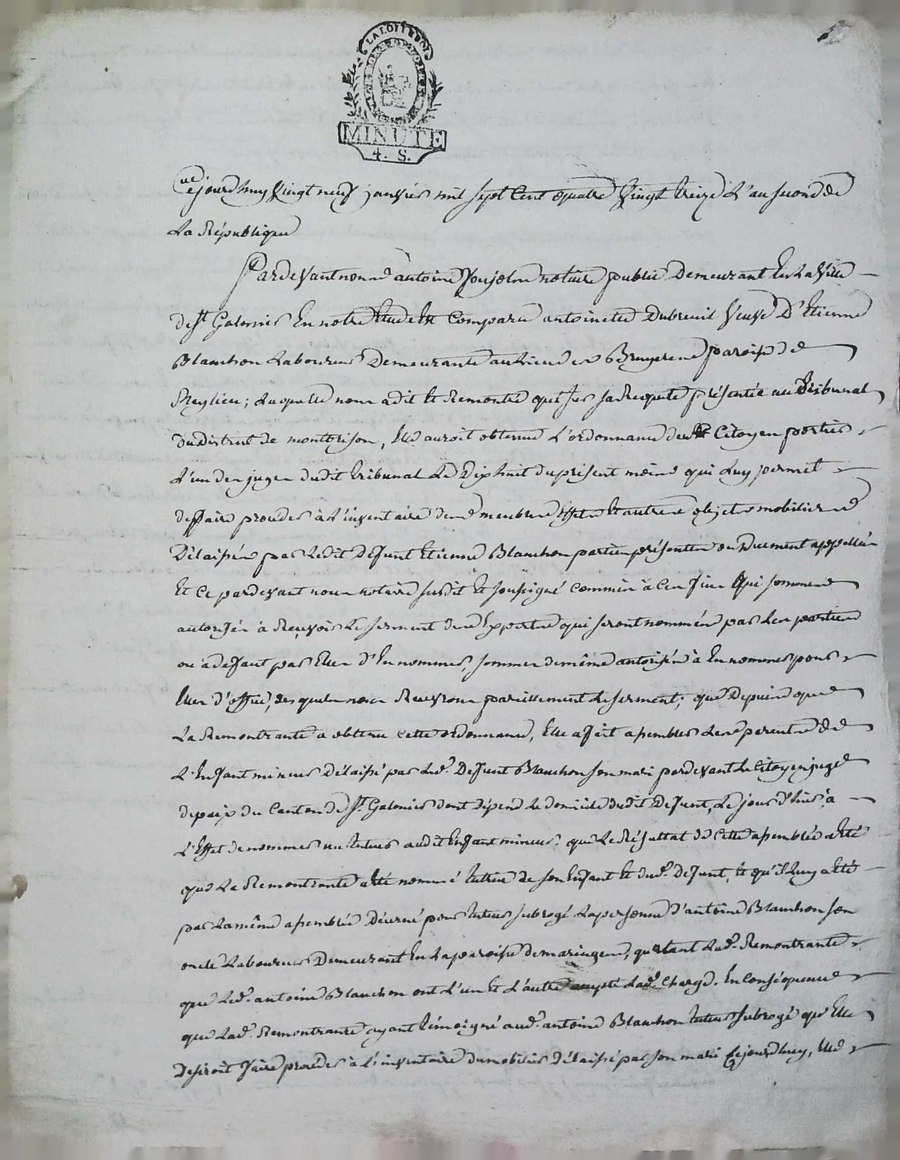 LA LOI LE ROI
MINUTE
4. S.
Cejourdhuy Vingt neuf janvier mil sept Cent quatre Vingt treize L'an second de
La République
Pardevant nous antoine notaire public Demeurant En La Ville
de St Galmier En notre Etude Est Comparu antoinette Dubreuil Veuve D'Etienne
Blanchon Laboureur Demeurante au Lieu des Bruyeres paroisse de
; Laquelle nous a dit Et Remontré que sur sa Requete présentée au Tribunal
du District de montbrison, Elle auroit obtenu L'ordonnance du Citoyen portier
L'un des juges dudit Tribunal Le Dix huit du présent mois qui Luy permet
de ffaire proceder à L'inventaire des meubles Effets Et autres objets mobiliers
Délaissés par Ledit Defunt Etienne Blanchon parties présentes ou Duement appellées
Et Ce pardevant nous notaire susdit Et soussigné commis à Ces fins Qui sommes
autorisés à Recevoir Le serment des Experts qui seront nommés par Les parties
ou à deffaut par Elles D'En nommer, sommes de même autorisés à En nommer pour
Elles d'office, desquels nous Recevrons pareillement Le serment; que Depuis que
La Remontrante a obtenu cette ordonnance, Elle a fait assembler Les parents de
L'Enfant mineur Délaissé par Led. Defunt Blanchon son mari pardevant Le Citoyen juge
de paix du Canton de St. Galmier dont dépend Le domicile dudit Defunt, Le jour d'hier, à
L'Effet de nommer un tuteur audit Enfant mineur; que Le Résultat de Cette assemblée a Eté
que La Remontrante a Eté nommée tutrice de son Enfant Et dud. Defunt, Et qu'il Luy a Eté
par La même assemblée Décerné pour tuteur subrogé La personne d'antoine Blanchon son
oncle Laboureur Demeurant En La paroisse de maringes, qu'Etant Lad. Remontrante
que Led. antoine Blanchon ont L'un Et L'autre accepté Lad. Charge. En Conséquence
que Lad. Remontrante ayant témoigné aud. antoine Blanchon tuteur subrogé qu'Elle
Desiroit faire proceder à L'inventaire du mobilier Délaissé par son mari Cejourdhuy, Elle